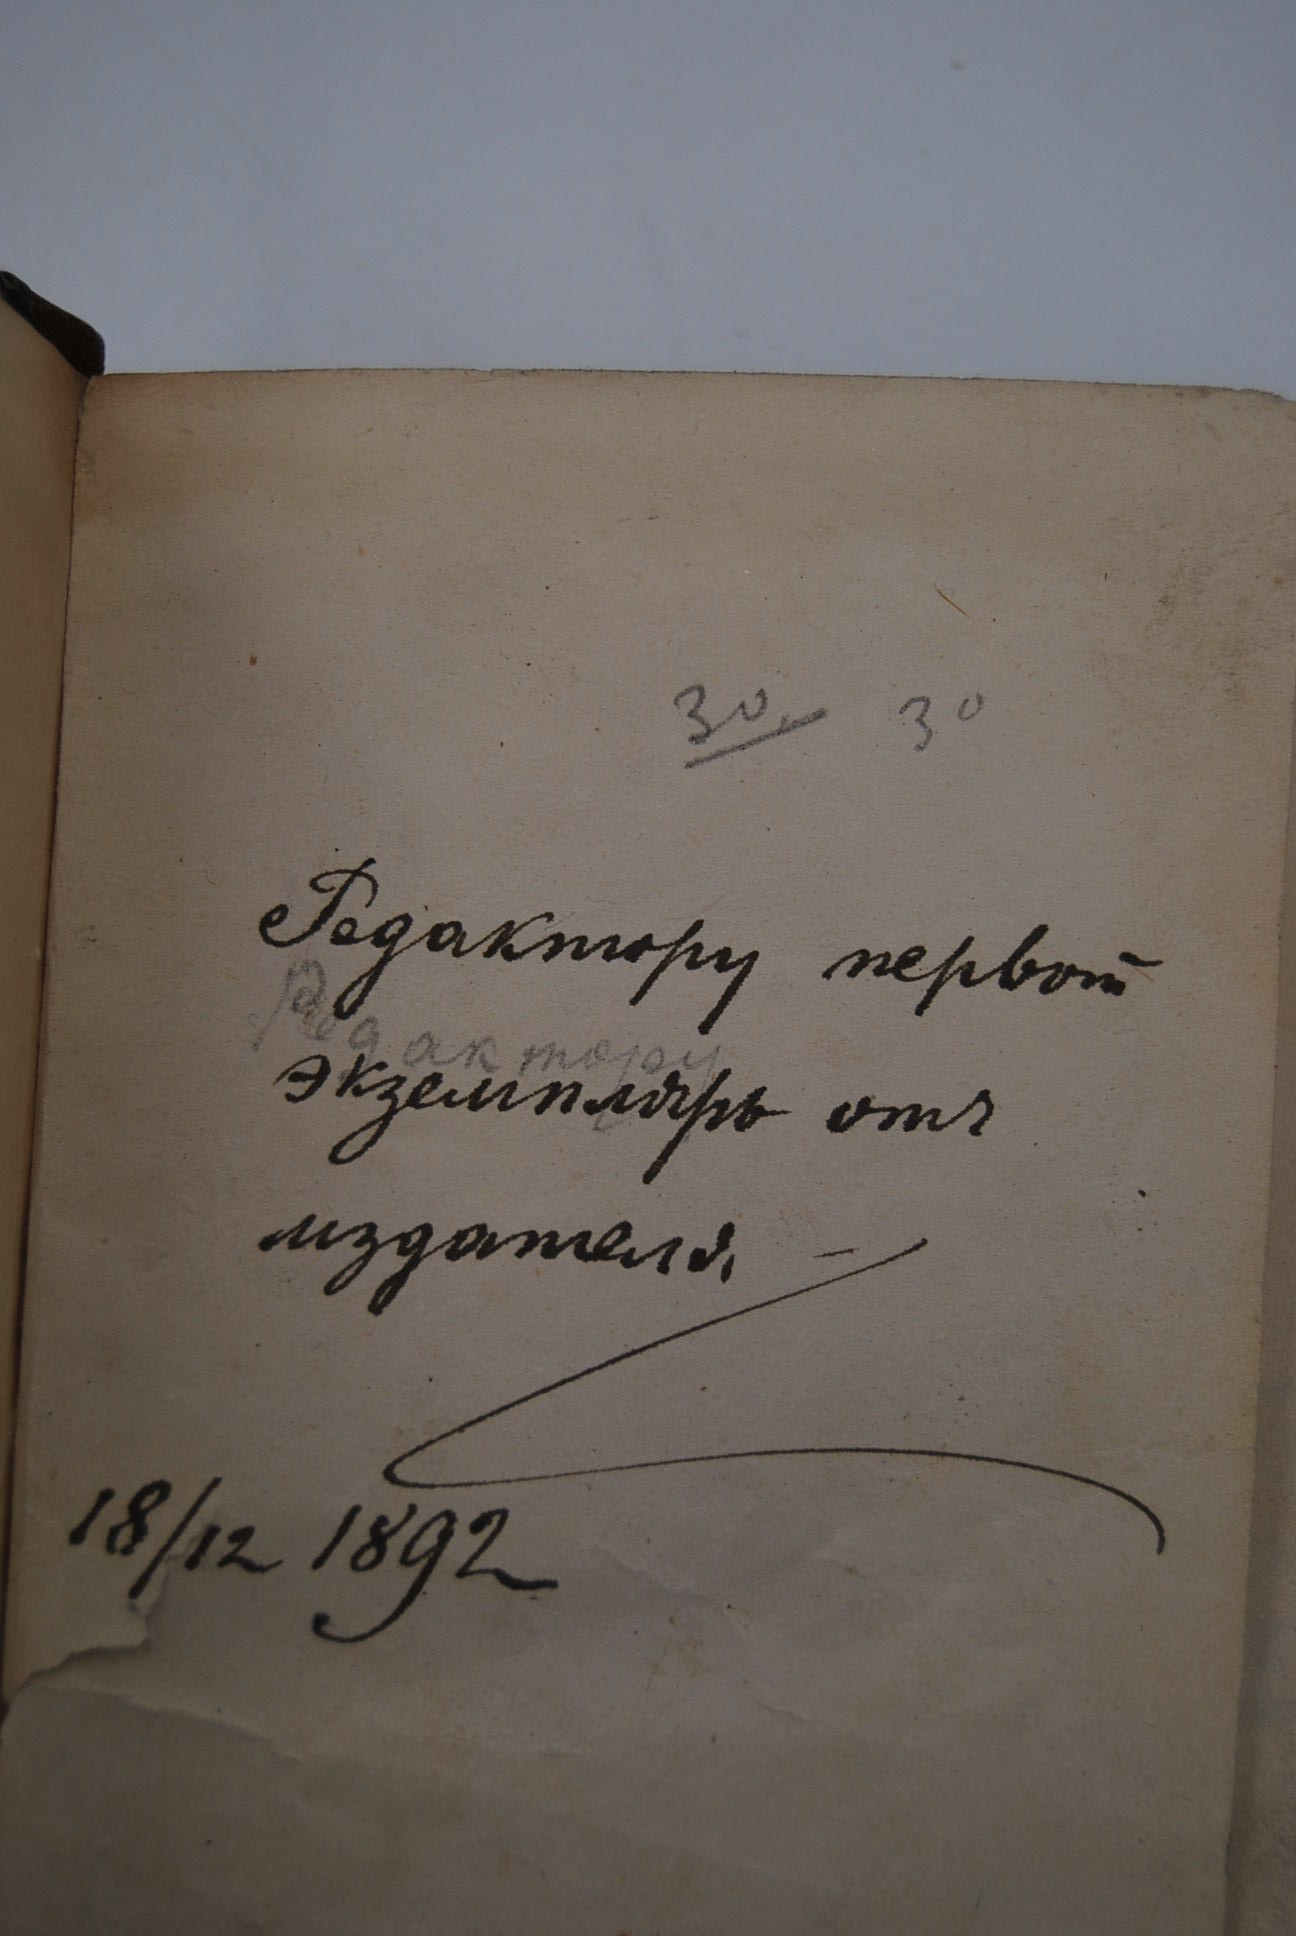 30,- 30
Редактору первый
Редактору
экземпляръ отъ
издателя,
18/12 1892